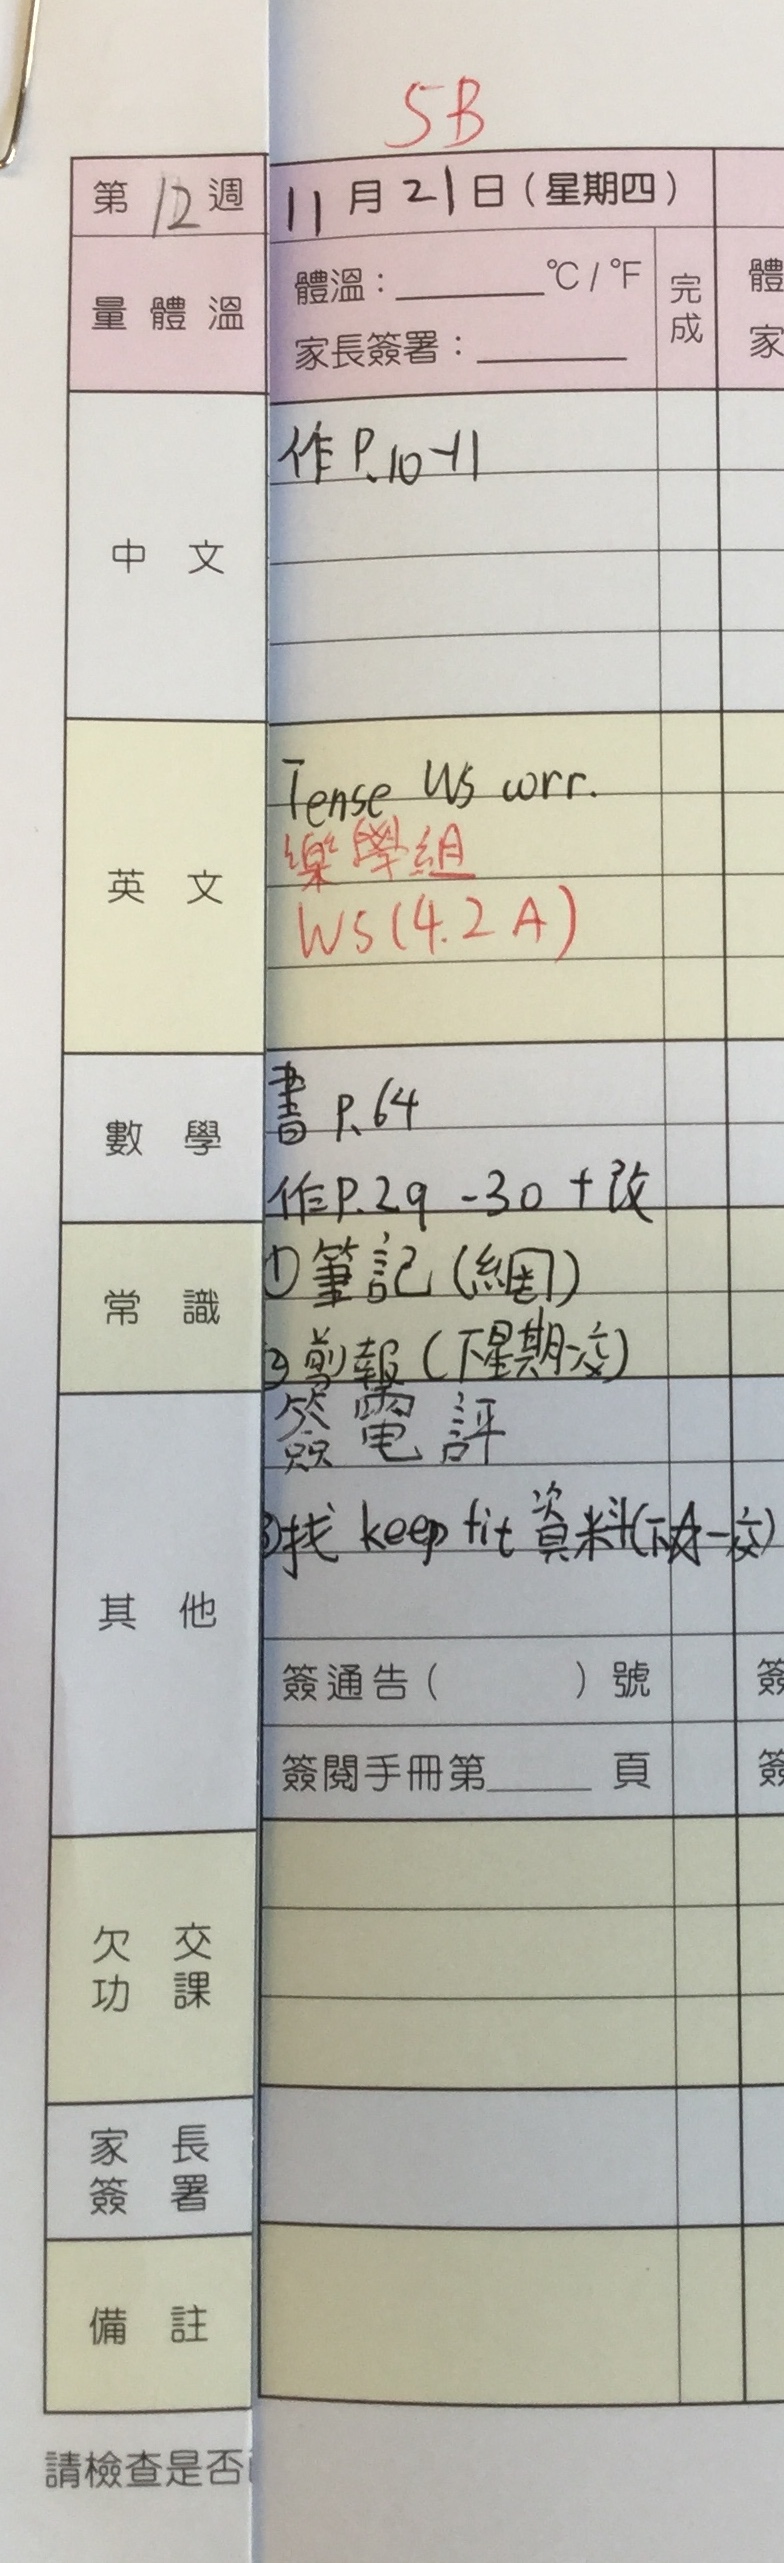 5B
第12週 11月21日（星期四）
量體溫 體溫：______°C / °F 完成 體
家長簽署：______ 家
中文 作P.10-11
英文 Tense WS corr.
樂學組
WS(4.2A)
數學 書P.64
作P.29-30+改
常識 ①筆記(網)
②剪報(下星期交)
其他 簽電評
③找 keep fit 資料(下一交)
簽通告（ ）號 簽
簽閱手冊第______頁 簽
欠交功課
家長簽署
備註
請檢查是否